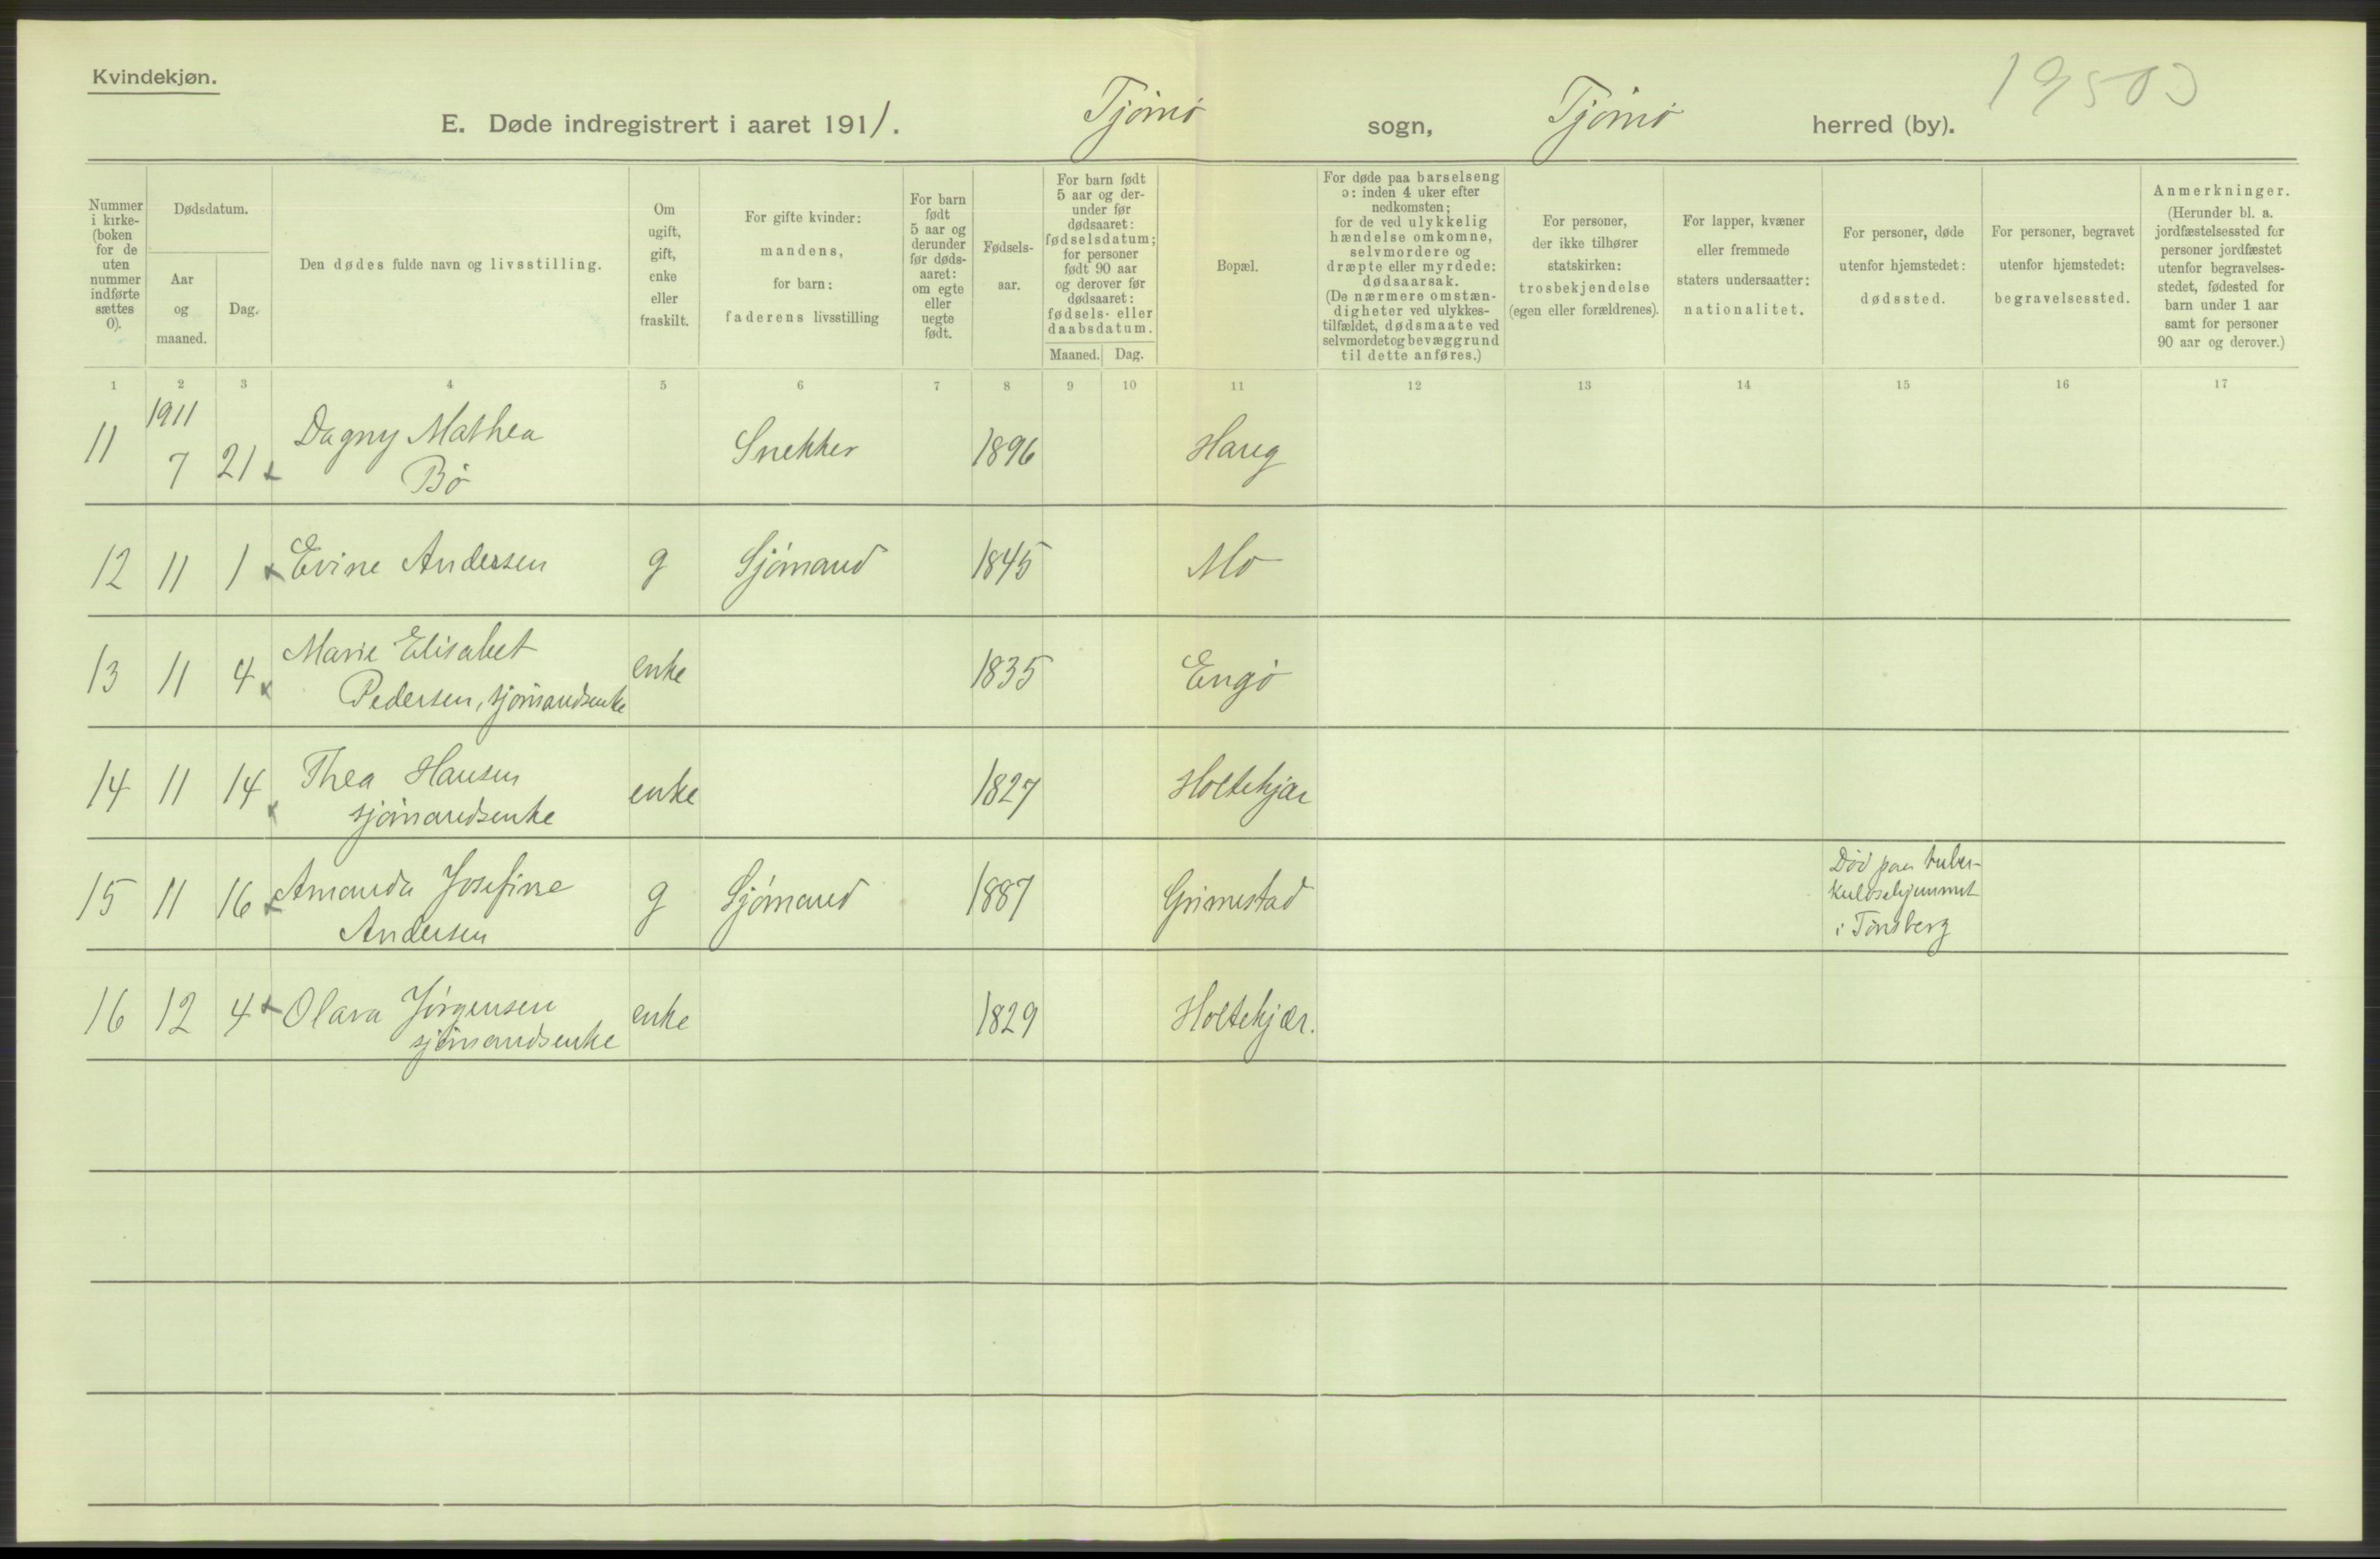 Kvindekjøn.
19503
E. Døde indregistrert i aaret 1911. Tjømø sogn, Tjømø herred (by).
Nummer i kirke-(boken for de uten nummer indførte sættes 0).
Dødsdatum.
Aar og maaned.
Dag.
Den dødes fulde navn og livsstilling.
Om ugift, gift, enke eller fraskilt.
For gifte kvinder: mandens, for barn: faderens livsstilling
For barn født 5 aar og derunder før døds-aaret: om egte eller uegte født.
Fødsels-aar.
For barn født 5 aar og der-under før dødsaaret: fødselsdatum; for personer født 90 aar og derover før dødsaaret: fødsels- eller daabsdatum.
Maaned. Dag.
Bopæl.
For døde paa barselseng ɔ: inden 4 uker efter nedkomsten; for de ved ulykkelig hændelse omkomne, selvmordere og dræpte eller myrdede: dødsaarsak. (De nærmere omstæn-digheter ved ulykkes-tilfældet, dødsmaate ved selvmordet og bevæggrund til dette anføres.)
For personer, der ikke tilhører statskirken: trosbekjendelse (egen eller forældrenes).
For lapper, kvæner eller fremmede staters undersaatter: nationalitet.
For personer, døde utenfor hjemstedet: dødssted.
For personer, begravet utenfor hjemstedet: begravelsessted.
Anmerkninger. (Herunder bl. a. jordfæstelsessted for personer jordfæstet utenfor begravelses-stedet, fødested for barn under 1 aar samt for personer 90 aar og derover.)
1 2 3 4 5 6 7 8 9 10 11 12 13 14 15 16 17
1911
11 7 21 x Dagny Mathea Snekker 1896 Haug
Bø
12 11 1 x Evine Andersen g Sjømand 1845 Mo
13 11 4 x Marie Elisabet enke 1835 Engø
Pedersen, sjømandsenke
14 11 14 x Thea Hansen enke 1827 Holtekjær
sjømandsenke
15 11 16 x Amanda Josefine g Sjømand 1887 Grimestad Død paa tuber-
Andersen kulosehjemmet
i Tønsberg
16 12 4 x Olava Jørgensen enke 1829 Holtekjær.
sjømandsenke